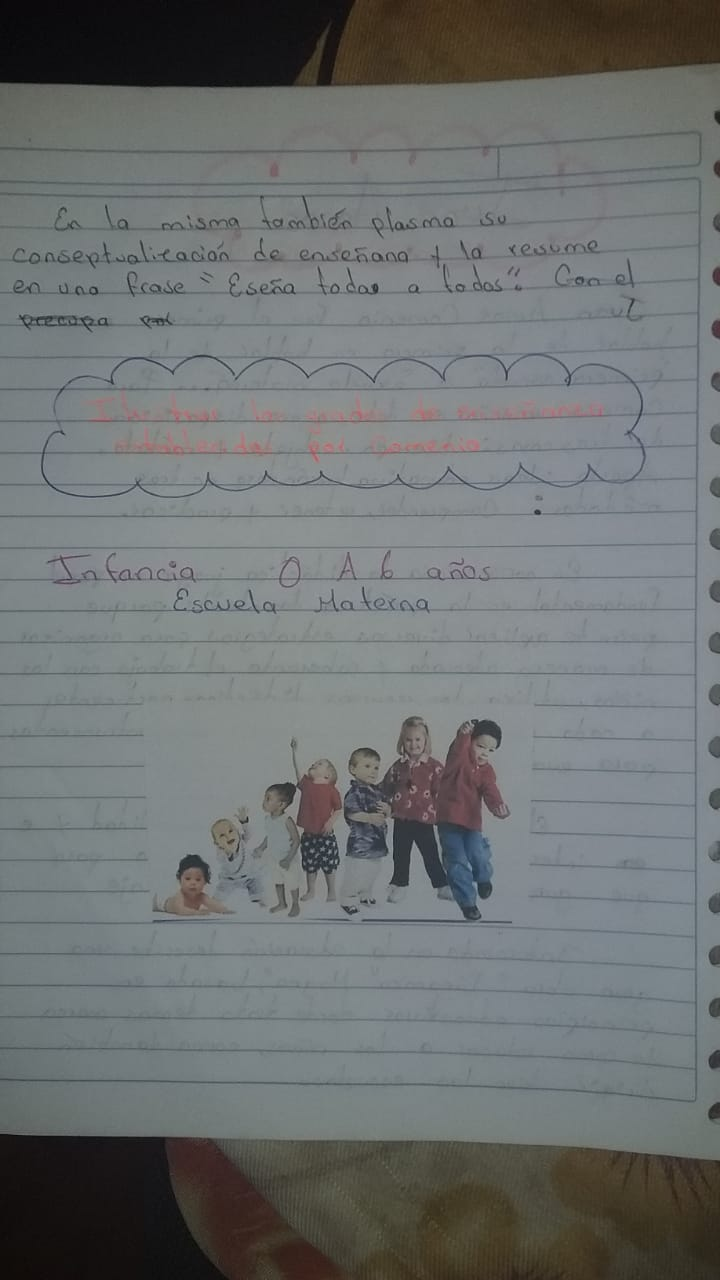 En la misma también plasma su
conseptualización de enseñana y la resume
en una frase "Eseña todas a todas". Con el
precupa
Ilustrar los grados de enseñanza
establecidos por Comenio
:
Infancia : 0 A 6 años
Escuela Materna